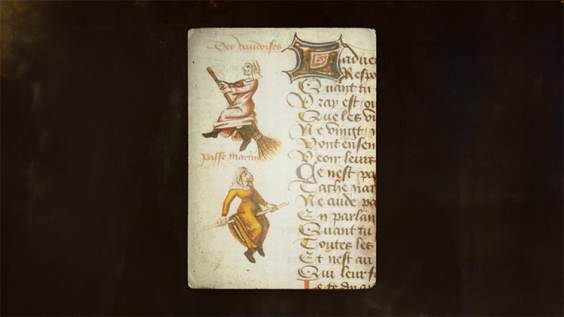 Des vaudoises
passe martin
adver
Respo
Quant tu
Vray est ou
Que les vi
Ne vingt n
Vont ensem
Veoir leurs
Ce nest pa
En parlan
Quant tu
Toutes les
Et nest au
Qui leur f